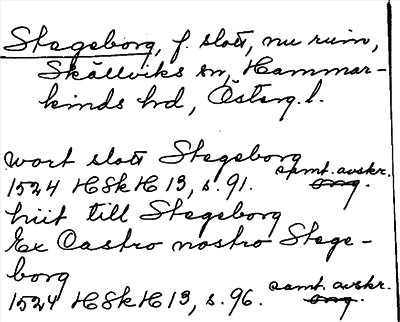 Stegeborg, f. slott, nu ruin,
Skällviks sn, Hammar-
kinds hd, Österg. l.
wort slott Stegeborg
1524 HSkH 13, s. 91. samt. avskr.
hiit till Stegeborg
Ex Castro nostro Stege-
borg
1524 HSkH 13, s. 96. samt. avskr.